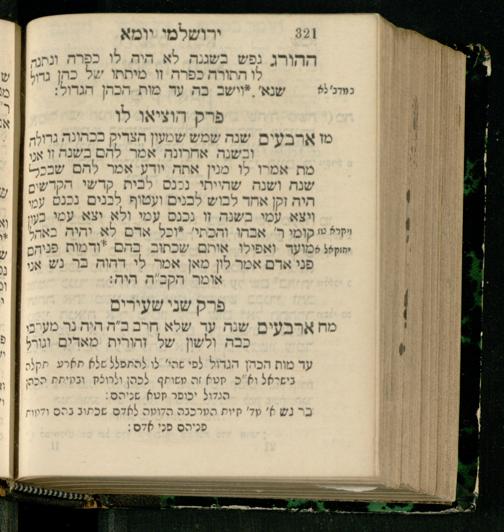 321
ירושלמי יומא
ההורג נפש בשגגה לא היה לו כפרה ונתנה
לו התורה כפרה זו מיתתו של כהן גדול
שנא׳ *וישב בה עד מות הכהן הגדול:
במדב׳ לא
פרק הוציאו לו
מז ארבעים שנה שמש שמעון הצדיק בכהונה גדולה
ובשנה אחרונה אמר להם בשנה זו אני
מת אמרו לו מנין אתה יודע אמר להם שבכל
שנה ושנה שהייתי נכנס לבית קדשי הקדשים
היה זקן אחד לבוש לבנים ועטוף לבנים נכנס עמי
ויצא עמי בשנה זו נכנס עמי ולא יצא עמי בעין
ויקרא טז קומי ר׳ אבהו והכתי׳ *וכל אדם לא יהיה באהל
יחזקאל א מועד ואפילו אותם שכתוב בהם *ודמות פניהם
פני אדם אמר לון מאן אמר לי דהוה בר נש אני
אומר הקב״ה היה:
פרק שני שעירים
מח ארבעים שנה עד שלא חרב ב״ה היה נר מערבי
כבה ולשון של זהורית מאדים וגורל
עד מות הכהן הגדול לפי שהי׳ לו להתפלל שלא תארע תקלה
בישראל וא״כ חטא זה משותף לכהן ולרוצח ובמיתת הכהן
הגדול יכופר חטא שניהם:
בר נש א׳ עד׳ חיות המרכבה הדומה לאדם שכתוב בהם ודמות
פניהם פני אדם: